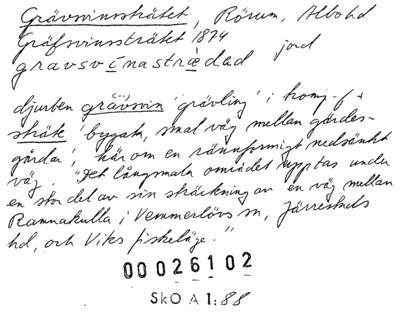 Grävsvinssträtet, Rörum, Albo hd
Gräfsvinssträtet 1874 jord
gravsvīnastrǣdad
djurben grävsvin 'grävling' i komp. f +
sträte 'bygata, smal väg mellan gärdes-
gårdar', här om en rännformigt nedsänkt
väg. "Det långsmala området upptas under
en stor del av sin sträckning av en väg mellan
Ramnakulla i Vemmerlövs sn, Järrestads
hd, och Viks fiskeläge."
00026102
SkO A 1:88